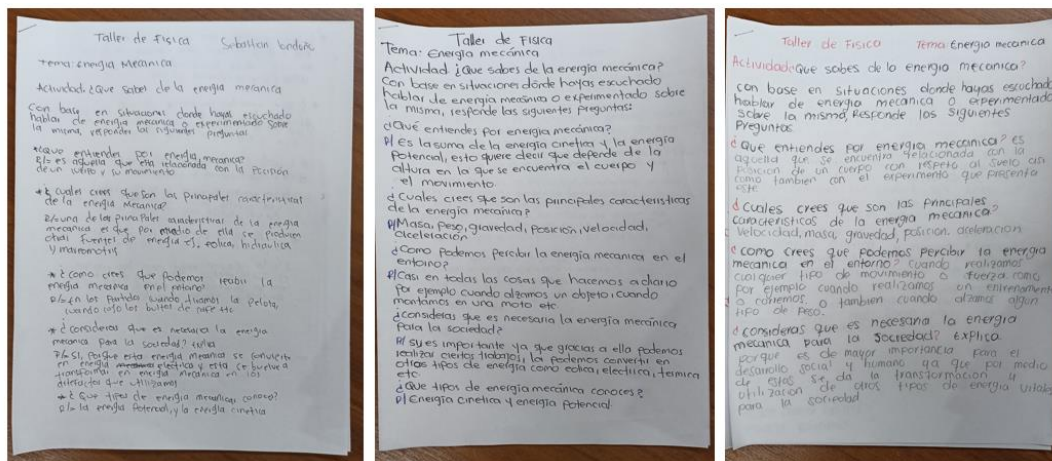 Taller de Fisica Sebastian
Tema: Energia Mecanica
Actividad: ¿Que sabes de la energia mecanica
Con base en situaciones donde hayas escuchado
hablar de energia mecanica o experimentado sobre
la misma, responder las siguientes preguntas
*¿que entiendes por energia mecanica?
R/= es aquella que esta relacionada con la Posición
de un cuerpo y su movimiento
*¿cuales crees que son las Principales caracteristicas
de la energia Mecanica?
R/= una de las principales caracteristicas de la energia
mecanica es que por medio de ella se producen
otras fuentes de energia ej, eolica, hidraulica
y mareomotriz
*¿como crees que Podemos la
energia mecanica en el entorno?
R/= en los Partidos cuando tiramos la Pelota,
cuando
*¿consideras que es necesaria la energia
mecanica para la sociedad?
R/= si, Porque esta energia mecanica se convierte
en energia electrica y esta se vuelve a
transformar en energia mecanica en los
que utilizamos
*¿que tipos de energia mecanica, conoce?
R/= la energia Potencial, y la energia cinetica
Taller de Fisica
Tema: Energia mecánica
Actividad ¿Que sabes de la energia mecánica?
Con base en situaciones dónde hayas escuchado
hablar de energia mecánica o experimentado sobre
la misma, responde las siguientes preguntas:
¿Qué entiendes por energia mecánica?
R/ es la suma de la energia cinetica y la energia
potencial, esto quiere decir que depende de la
altura en la que se encuentra el cuerpo y
el movimiento.
¿cuales crees que son las principales caracteristicas
de la energia mecánica?
R/ Masa, peso, gravedad, posición, velocidad,
aceleración
¿Como podemos percibir la energia mecanica en el
entorno?
R/ casi en todas las cosas que hacemos a diario
por ejemplo cuando alzamos un objeto, cuando
montamos en una moto etc
¿consideras que es necesaria la energia mecánica
para la sociedad?
R/ si, es importante ya que gracias a ella podemos
realizar ciertos trabajos, la podemos convertir en
otros tipos de energia como eolica, electrica, termica
etc
¿Que tipos de energia mecánica conoces?
R/ Energia cinetica y energia potencial
Taller de Fisica Tema: Energia mecanica
Actividad: Que sabes de la energia mecanica?
con base en situaciones donde hayas escuchado
hablar de energia mecanica o experimentado
sobre la misma, Responde las siguientes
Preguntas.
¿Que entiendes por energia mecanica? es
aquella que se encuentra relacionada con la
posicion de un cuerpo con respeto al suelo asi
como tambien con el experimento que presenta
este.
¿Cuales crees que son las principales
caracteristicas de la energia mecanica?
Velocidad, masa, gravedad, posicion, aceleracion
¿como crees que podemos percibir la energia
mecanica en el entorno? cuando realizamos
cualquier tipo de movimiento o fuerza como
por ejemplo cuando realizamos un entrenamiento
o corremos, o tambien cuando alzamos algun
tipo de peso.
¿consideras que es necesaria la energia
mecanica para la sociedad? Explica.
porque es de mayor importancia para el
desarollo social y humano ya que por medio
de estas se da la transformacion y
utilizacion de otros tipos de energia vitales
para la sociedad